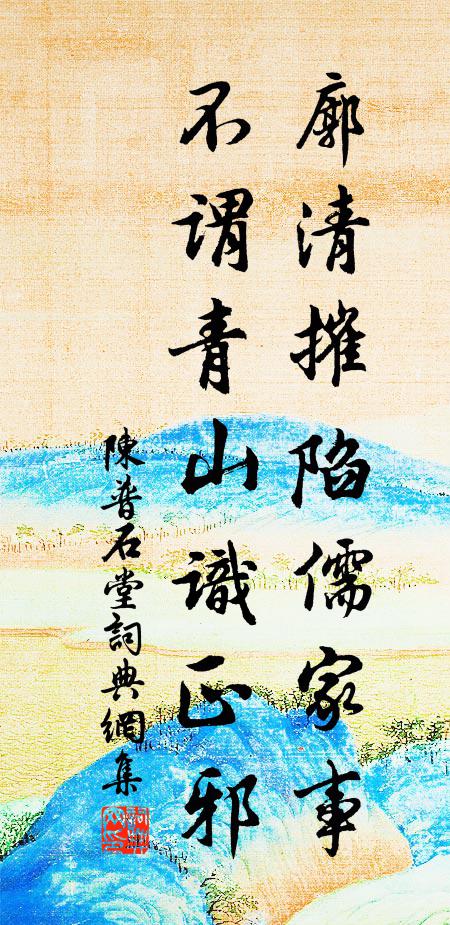 廓清摧陷儒家事
不谓青山識正邪
陳普石堂詞典網集